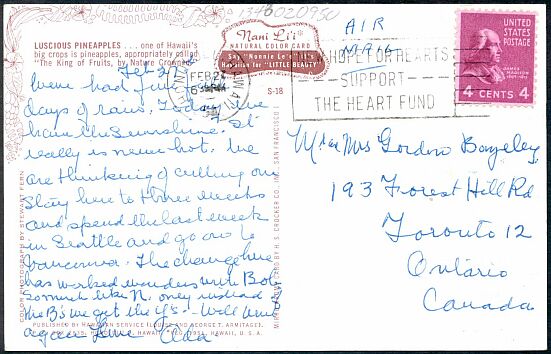 134B020950
LUSCIOUS PINEAPPLES . . . one of Hawaii's
big crops is pineapples, appropriately called
"The King of Fruits, by Nature Crowned"
Nani Li'i
NATURAL COLOR CARD
Say "Nonnie Lee'ee", It's
Hawaiian for "LITTLE BEAUTY"
S-18
FEB 24
HOPE FOR HEARTS
SUPPORT
THE HEART FUND
UNITED
STATES
POSTAGE
JAMES
MADISON
4 CENTS 4
AIR
MAIL
Feb 24
Were had four
days of rain. Today we
have the sunshine. It
really is never hot. We
are thinking of cutting our
stay here to three weeks
and spend the last week
in Seattle and go on to
Vancouver. The change here
has worked wonders with Bob
so much like N. only instead
the B's we get the i's. Will write
again Love Elda
Mr &amp; Mrs Gordon Bazeley
193 Forest Hill Rd
Toronto 12
Ontario
Canada
COLOR PHOTO BY STEWART FERN
MIRRO-KROME CARD BY H. S. CROCKER CO., INC., SAN FRANCISCO
PUBLISHED BY HAWAIIAN SERVICE (LOUISE AND GEORGE T. ARMITAGE),
HAWAII, U. S. A.